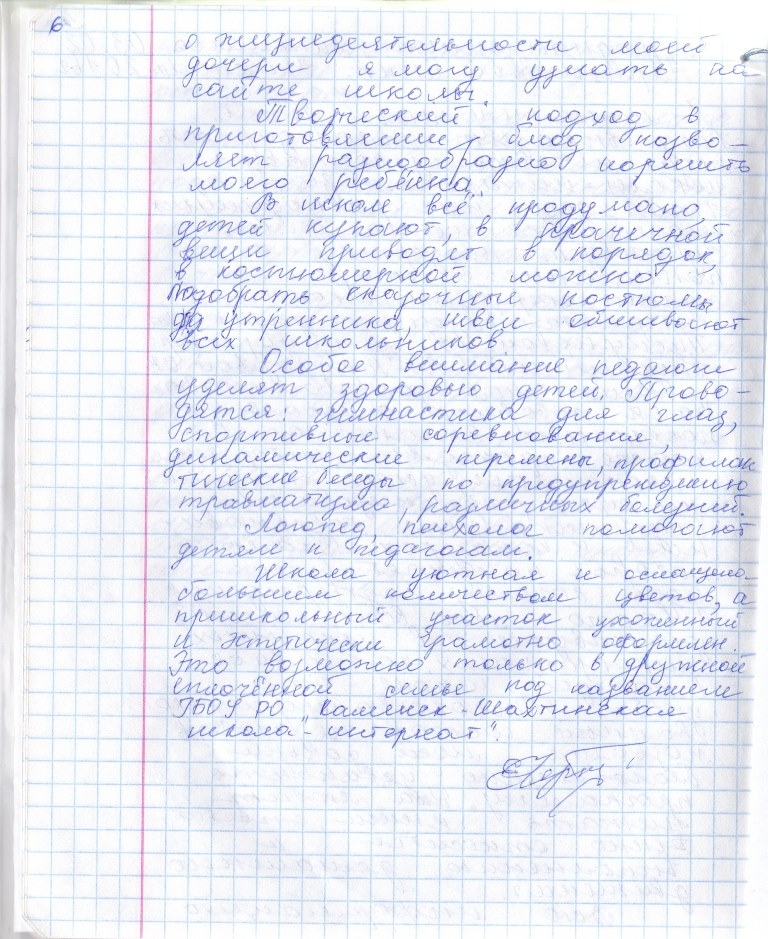 6
о жизнедеятельности моей
дочери я могу узнать на
сайте школы.
Творческий подход в
приготовлении блюд позво-
ляет разнообразно кормить
моего ребёнка.
В школе всё продумано,
детей купают, в прачечной
вещи приводят в порядок,
в костюмерной можно
подобрать сказочные костюмы
на утренники, швеи обшивают
всех школьников.
Особое внимание педагоги
уделят здоровью детей. Прово-
дятся: гимнастика для глаз,
спортивные соревнования,
динамические перемены, профилак
тические беседы по предупреждению
травматизма, различных болезней.
Логопед, психолог помогают
детям и педагогам.
Школа уютная и оснащена
большим количеством цветов, а
пришкольный участок ухоженный
и эстетически грамотно оформлен.
Это возможно только в дружной
сплочённой семье под названием
ГБОУ РО „Каменск-Шахтинская
школа-интернат".